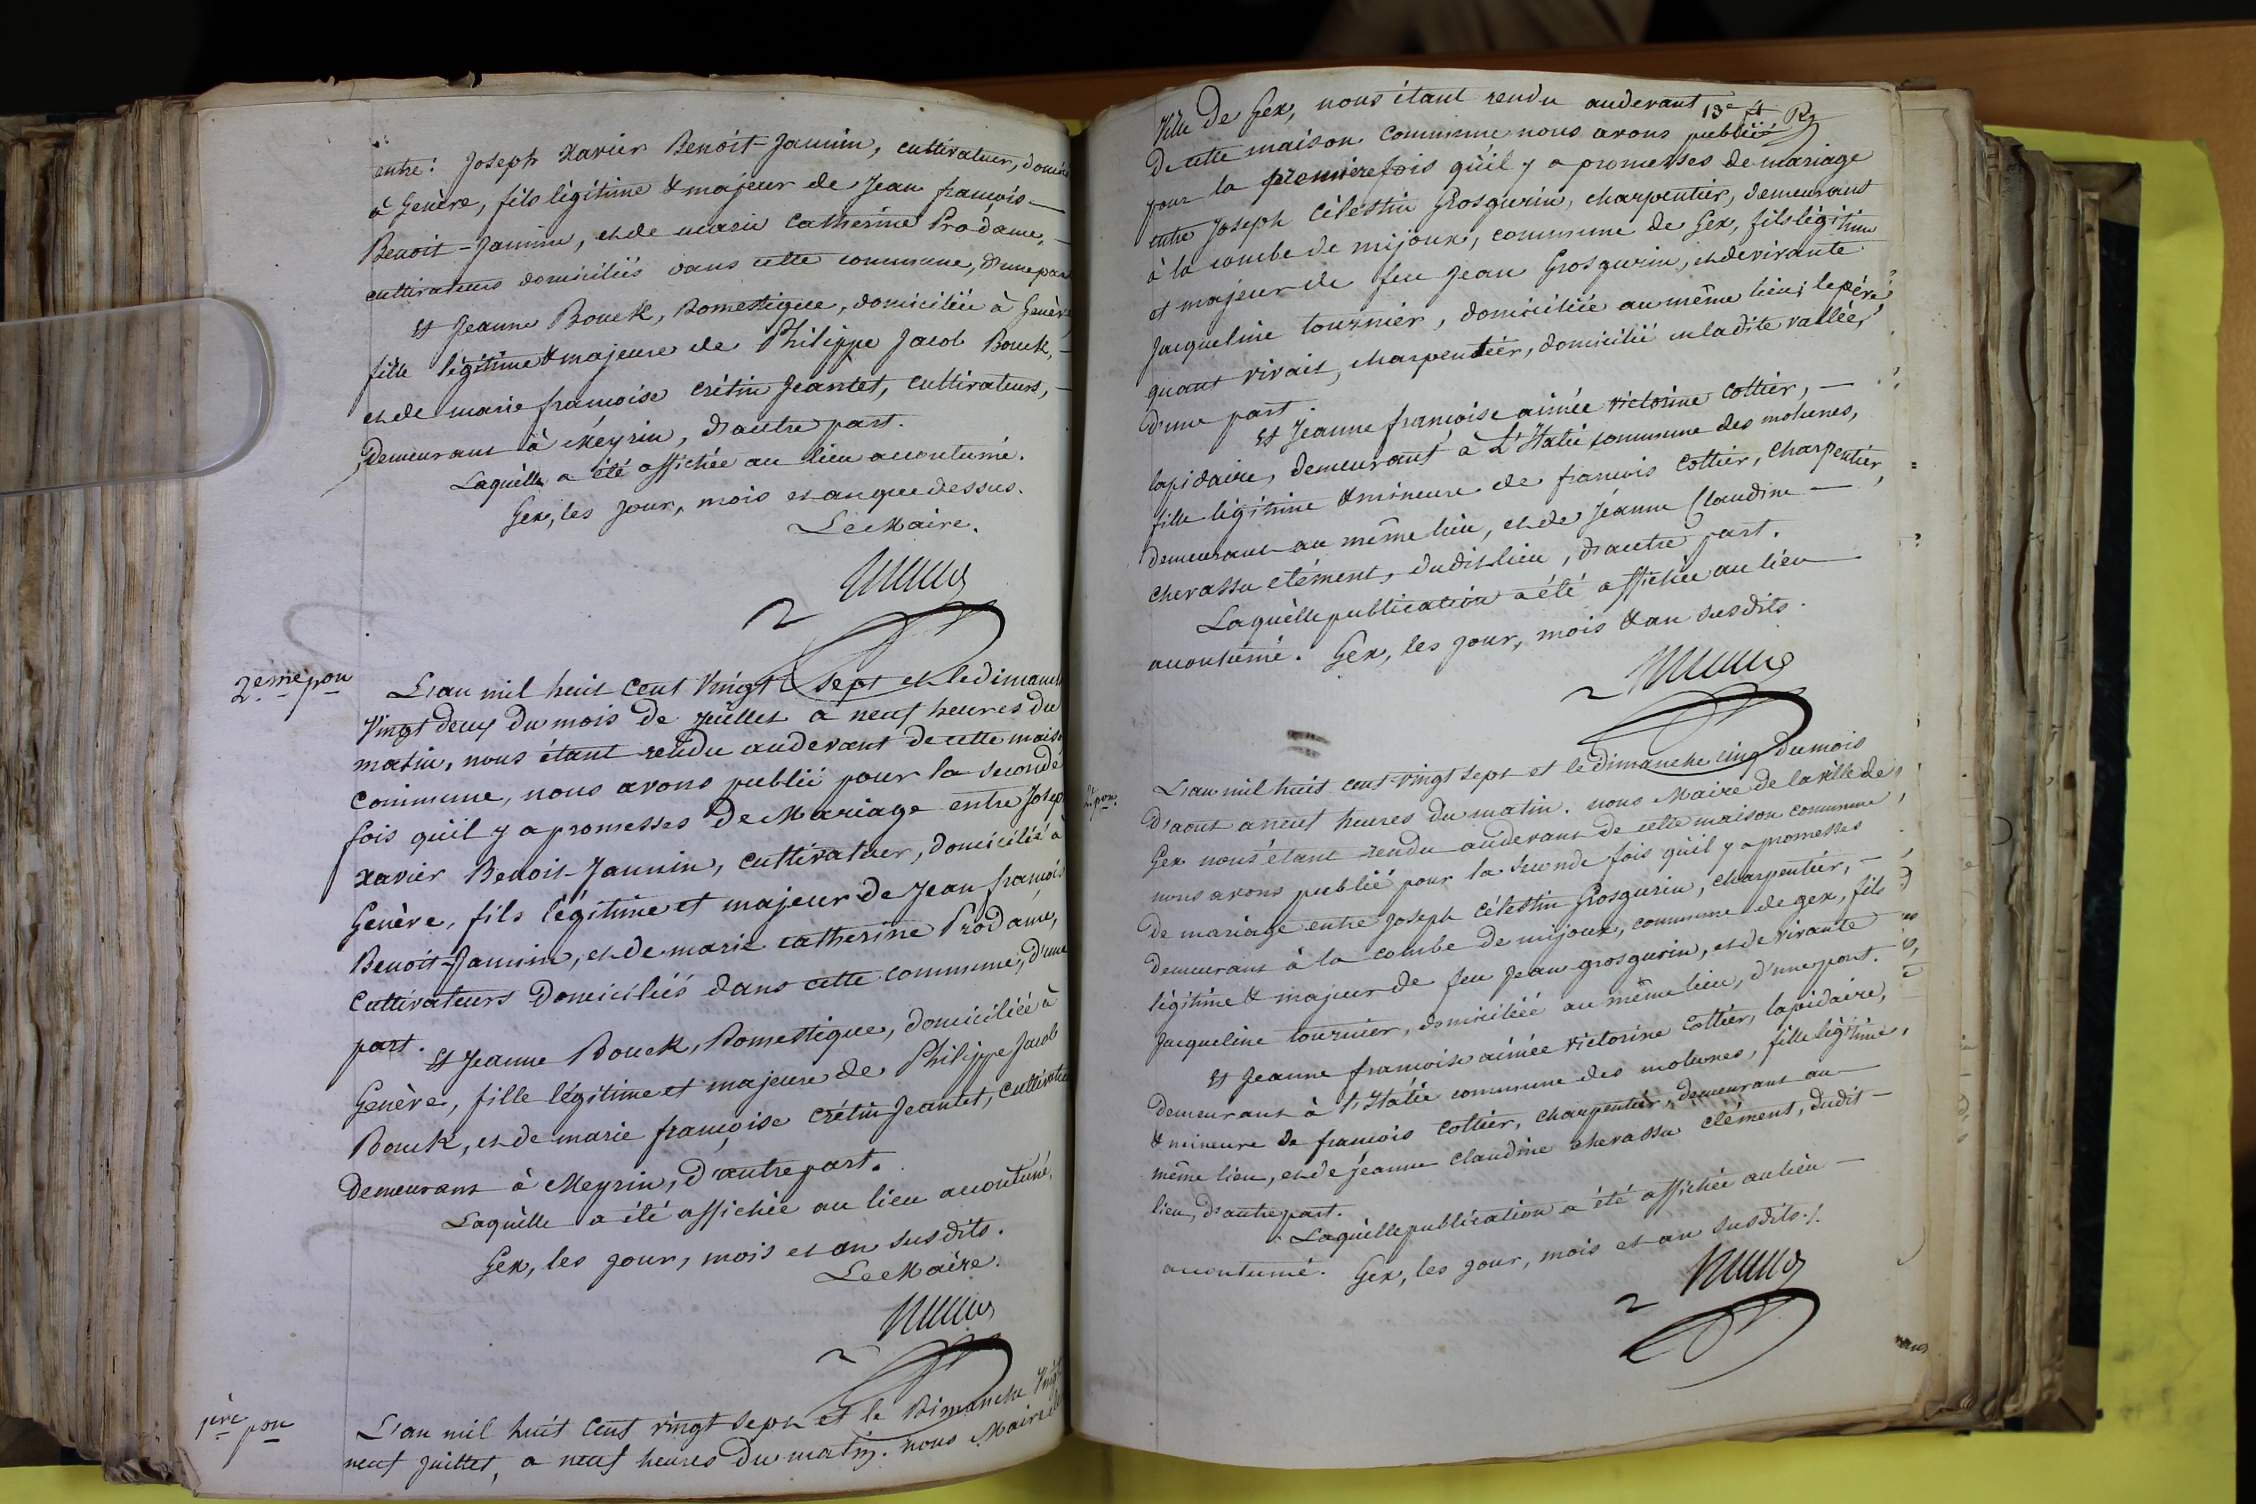 entre: Joseph Xavier Benoit-Jannin, cultivateur, domici
à Genève, fils légitime & majeur de Jean françois —
Benoit-Jannin, et de marie Catherine Prodame, —
cultivateurs domiciliés dans cette commune, d'une part
Et Jeanne Bouck, Domestique, domiciliée à Genève,
fille légitime & majeure de Philippe Jacob Bouck, —
et de marie françoise crétin Jeantet, cultivateurs, —
Demeurant à Meyrin, d'autre part.
Laquèlle a été affichée au lieu accoutumé.
Gex, les jour, mois et an que dessus.
Le Maire.
2.eme pon
L'an mil huit cent vingt sept et le dimanche
Vingt deux du mois de Juillet à neuf heures du
matin, nous étant rendu audevant de cette maison
commune, nous avons publié pour la seconde
fois qu'il y a promesses de Mariage entre Joseph
Xavier Benoit-Jannin, cultivateur, domicilié à
Genève, fils légitime et majeur de Jean françois
Benoit-Jannin, et de marie catherine Prodame,
Cultivateurs Domiciliés dans cette commune, d'une
part.
Et Jeanne Bouck, Domestique, domiciliée à
Genève, fille légitime et majeure de Philippe Jacob
Bouck, et de marie françoise crétin Jeantet, cultivateurs
Demeurant à Meyrin, d'autre part.
Laquèlle a été affichée au lieu accoutumé.
Gex, les jour, mois et an susdits.
Le Maire.
1ère pon
L'an mil huit cent vingt sept et le Dimanche Vingt
neuf Juillet, a neuf heures Du matin. nous Maire de la
13e
Ville de Gex, nous étant rendu audevant
De cette maison commune nous avons publié
pour la premiere fois qu'il y a promesses de mariage
entre Joseph Célestin Grosgurin, charpentier, demeurant
à la combe de mijoux, commune de Gex, fils légitime
et majeur de feu Jean Grosgurin, et de vivante
Jacqueline tournier, domiciliée au même lieu; le père
quant vivait, charpentier, domicilié en ladite vallée,
d'une part
Et Jeanne françoise aimée victorine Cottier, —
lapidaire, demeurant à L'Italie commune des molunes,
fille légitime & mineure de francois Cottier, charpentier
demeurant au même lieu, et de Jéanne Claudine —
chevassu clément, dudit lieu, d'autre part.
Laquèlle publication a été affichée au lieu
accoutumé. Gex, les jour, mois & an susdits.
pon.
L'an mil huit cent vingt sept et le dimanche cinq du mois
d'aout a neuf heures du matin. nous Maire de la ville de
Gex nous étant rendu audevant de cette maison commune
nous avons publié pour la seconde fois qu'il y a promesses
de mariage entre Joseph Célestin Grosgurin, charpentier, —
Demeurant à la combe de mijoux, commune de gex, fils
légitime & majeur de feu Jean grosgurin, et de vivante
Jacqueline tournier, domiciliée au même lieu, d'une part.
Et Jeanne francoise aimée victorine Cottier, lapidaire,
Demeurant à l'Italie commune des molunes, fille légitime,
& mineure de francois Cottier, charpentier, demeurant au
même lieu, et de Jéanne Claudine chevassu clément, dudit —
lieu, d'autre part.
Laquèlle publication a été affichée au lieu —
accoutumé. Gex, les jour, mois et an susdits./.